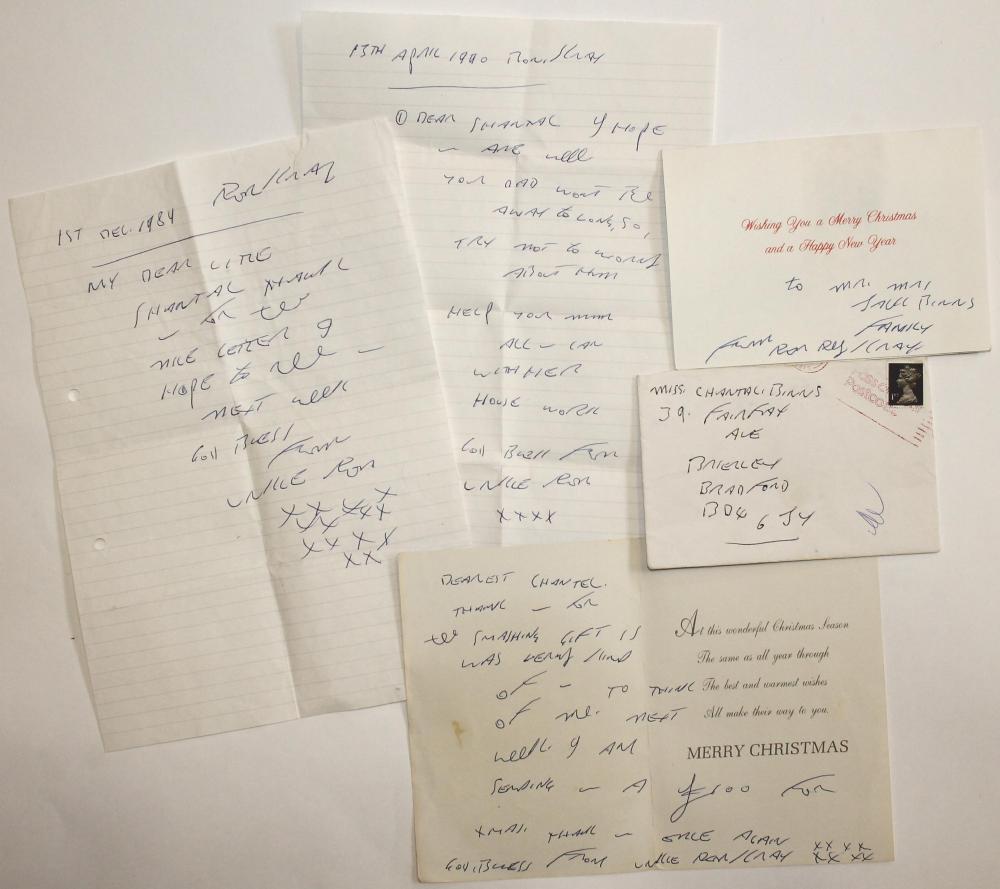 1ST DEC. 1984 RON/KRAY
MY DEAR LITLE
SHANTAL THANK
— FOR THE
NICE LETTER I
HOPE to SEE —
NEXT WEEK
GOD BLESS
FROM
UNCLE RON
XX XXX
XX
XX XX
XX
13TH APRIL 1990 RON/KRAY
① DEAR SHANTAL I HOPE
— ARE WELL
YOUR DAD WONT BE
AWAY to LONG, SO,
TRY NOT to WORRY
ABOUT HIM
HELP YOUR MUM
ALL — CAN
WITH HER
HOUSE WORK
GOD BLESS FROM
UNCLE RON
XXXX
Wishing You a Merry Christmas
and a Happy New Year
to MR. MRS
JACK BINNS
FAMILY
FROM RON REG/KRAY
MISS. CHANTAL. BINNS
39. FAIRFAX
AVE
BRIERLEY
BRADFORD
BD4
6 JY
DEAREST CHANTEL.
THANK — FOR
THE SMASHING GIFT IS
WAS VERY KIND
OF — TO THINK
OF ME. NEXT
WEEK. I AM
SENDING — A £100 FOR
XMAS. THANK — ONCE AGAIN
GOD. BLESS FROM UNCLE RON/KRAY XX XX
XX XX
At this wonderful Christmas Season
The same as all year through
The best and warmest wishes
All make their way to you.
MERRY CHRISTMAS